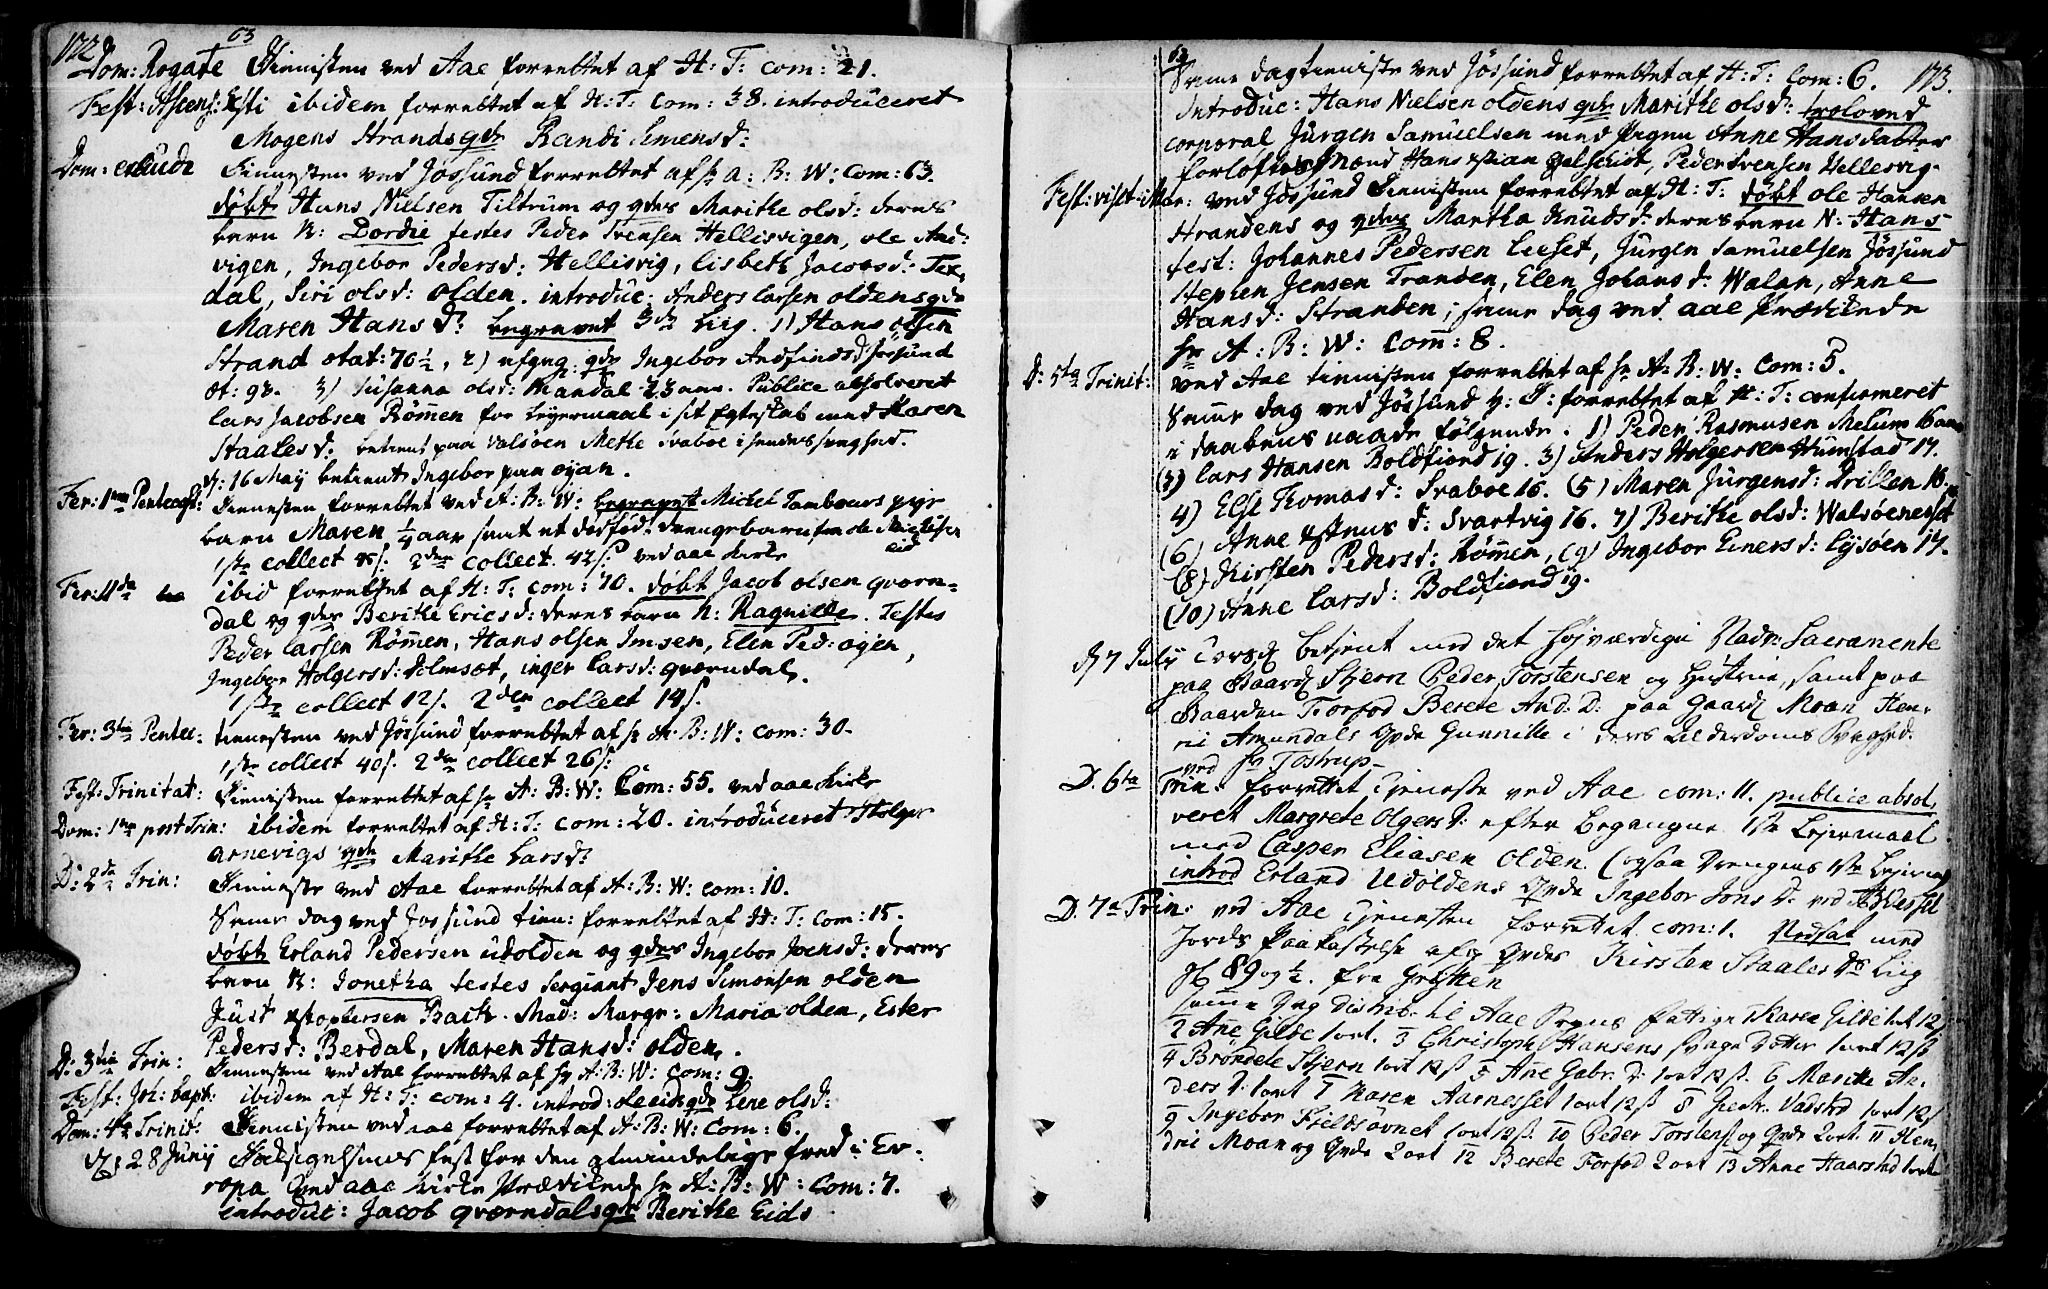 172
63
Dom: Rogate Tienisten ved Aae forrettet af H: T: com: 21.
Fest: Ascens: Xsti ibidem forrettet af H: T: com: 38. introduceret
Mogens Strands qde Randi Simensd:
Dom: exaudi Tienesten ved Jøssund forrettet af hr A: B: W: com: 63.
døbt Hans Nielsen Tiltrum og qdes Marithe olsd: deres
barn N: Dordie testes Peder Svensen Hellisvigen, ole And:
vigen, Ingebor Pedersd: Hellisvig, Lisbeth Jacobsd: Tex,
dal, Siri olsd: olden. introduc: Anders Larsen oldens qde
Maren Hansd: begravet 3de Liig. 1) Hans olsen
Strand ætat: 70½, 2) qde Ingebor Andfindsd: Jøssund
æt: 93. 3) Susanna olsd: Mandal 23 aar. Publice absolveret
Lars Jacobsen Rømmen for Leyermaal i sit Egteskab med Karen
Staalesd: betient paa Valsøen Mette Svaboe i hendes svaghed.
d: 16 May betient Ingebor paa øyan.
Fer: 1ma Pentecost: Tienesten forrettet ved A: B: W: begravet Michel Tambours pige
barn Maren ¼ aar samt et dødfød: drengebarn ole
eid
1ste collect 2den collect. 42 s. ved aae kirke
Fer: 2da ibid forrettet af H: T: com: 70. døbt Jacob olsen qværn-
dal og qdes Berithe Ericsd: deres barn N: Ragnille. Testes
Peder Larsen Rømmen, Hans olsen Imsen, Elen Ped: øyen,
Ingebor Holgersd: Holmsæt, inger Larsd: qværndal.
1ste collect 12 s. 2den collect 14 s.
Fer: 3tia Pentec: tienesten ved Jøssund forrettet af hr A: B: W: com: 30.
1ste collect 40 s. 2den collect 26 s.
Fest: Trinitat: Tienisten forrettet af hr A: B: W: Com: 55. ved aae kirke
Dom: 1ma post Trin: ibidem forrettet af H: T: com: 20. introduceret Holger
arnevigs qde Marithe Larsd:
D: 2da Trin: Tieniste ved Aae forrettet af A: B: W: com: 10.
Same dag ved Jossund tien: forrettet af H: T: com: 15.
døbt Erland Pedersen udolden og qdes Ingebor Joensd: deres
barn N: Jonetha testes Sergiant Jens Simonsen olden
Just Xstophersen Bach. Mad: Margr: Maria olden, Ester
Pedersd: Berdal, Maren Hansd: olden.
D: 3tia Trin: Tienesten ved Aae forrettet af hr A: B: W: com: 9.
Fest: Joh: bapt: ibidem af H: T: com: 4. introd: ole eids qde Lene olsd:
Dom: 4ta Trinit: Tienisten ved aae forrettet af A: B: W: Com: 6.
d: 28 Junij Taksigelsens fest for den almindelige fred i Eu-
ropa ved aae kirke Prædikede hr A: B: W: Com: 7.
introduc: Jacob qværndals qde Berithe Eids
62
Same dag tieniste ved Jøssund forrettet af H: T: Com: 6. 173.
Introduc: Hans Nielsen oldens qde Marithe olsd: troloved
corporal Jürgen Samuelsen med Pigen Anne Hansdatter
forløftes Mænd Hans Xstian, Peder Svensen Hellesvig.
Fest: visit: Mar: ved Jøssund Tienisten forrettet af H: T: døbt ole Hansen
Strandens og qdes Martha Knudsd: deres barn N: Hans
test: Johannes Pedersen Leeset, Jürgen Samuelsen Jøssund
Stephen Jensen Tranden, Elen Johansd: Walan, Anne
Hansd: Stranden; same dag ved aae Prædikede
hr A: B: W: Com: 8.
D: 5ta Trinit: ved Aae tienisten forrettet af hr A: B: W: Com: 5.
Same dag ved Jøssund forrettet af H: T: confirmeret
i daabens naade følgende. 1) Peder Rasmusen Melum 16 aar
(2) Lars Hansen Boldfiord 19. 3) Anders Holgersen Humstad 17.
4) Else Thomasd: Svaboe 16. (5) Maren Jürgensd: Brillen 16.
(6) Anne d: Svartvig 16. 7) Berithe olsd: Walsøenesset
(8) Kirsten Pedersd: Rømmen, (9) Ingebor Einersd: Lysøen 17.
(10) Anne Larsd: Boldfiord 19.
d 7 July Torsd betjent med det høyværdige Nadv: Sacramente
paa Gaard Stjern Peder Torstensen og Hustrue, samt paa
Gaarden Forfod Berete And: D: paa Gaard Moan Hen-
ric Amundsls qvde Gunnille i deres Alderdoms Svaghed.
ved hr Tostrup
D. 6ta Trin: forrettet tjeneste ved Aae com: 11. publice absol,
veret Margrete Olgersd: efter begangne 1ste Lejermaal
med Casper Eliasen Olden. (ogsaa Drengens 1ste Lejermaal
introd Erland Udoldens qvde Ingebor Jonsd: ved
D. 7a Trin: ved Aae tjenesten forrettet com: 1. Nedsat med
Jords Paakastelse qvdes Kirsten Staales Ds Liig
89 og ½. fra Gretten
same Dag distrib: til Aae Sogns fattige 1 Karen Gilde 1 ort 12 s
2 Ane Gilde 1 ort. 3 Christoph Hansens svage Dotter 1 ort 12 s
4 Brøndete Stjern 1 ort 12 s 5 Ane Gabr: D: 1 ort 12 s. 6 Marithe An-
ders D: 1 ort 7 Karen Aarnesset 1 ort 12 s 8 Giert Vadsted 1 ort 12 s
9 Ingebor Fieldsøvnet 1 ort 12 s. 10 Peder Torstens: og qvde 2 ort. 11 Hen,
dric Moan og qvde 2 ort 12 Berete Forfod 2 ort 13 Anne Haarstad 1 ort